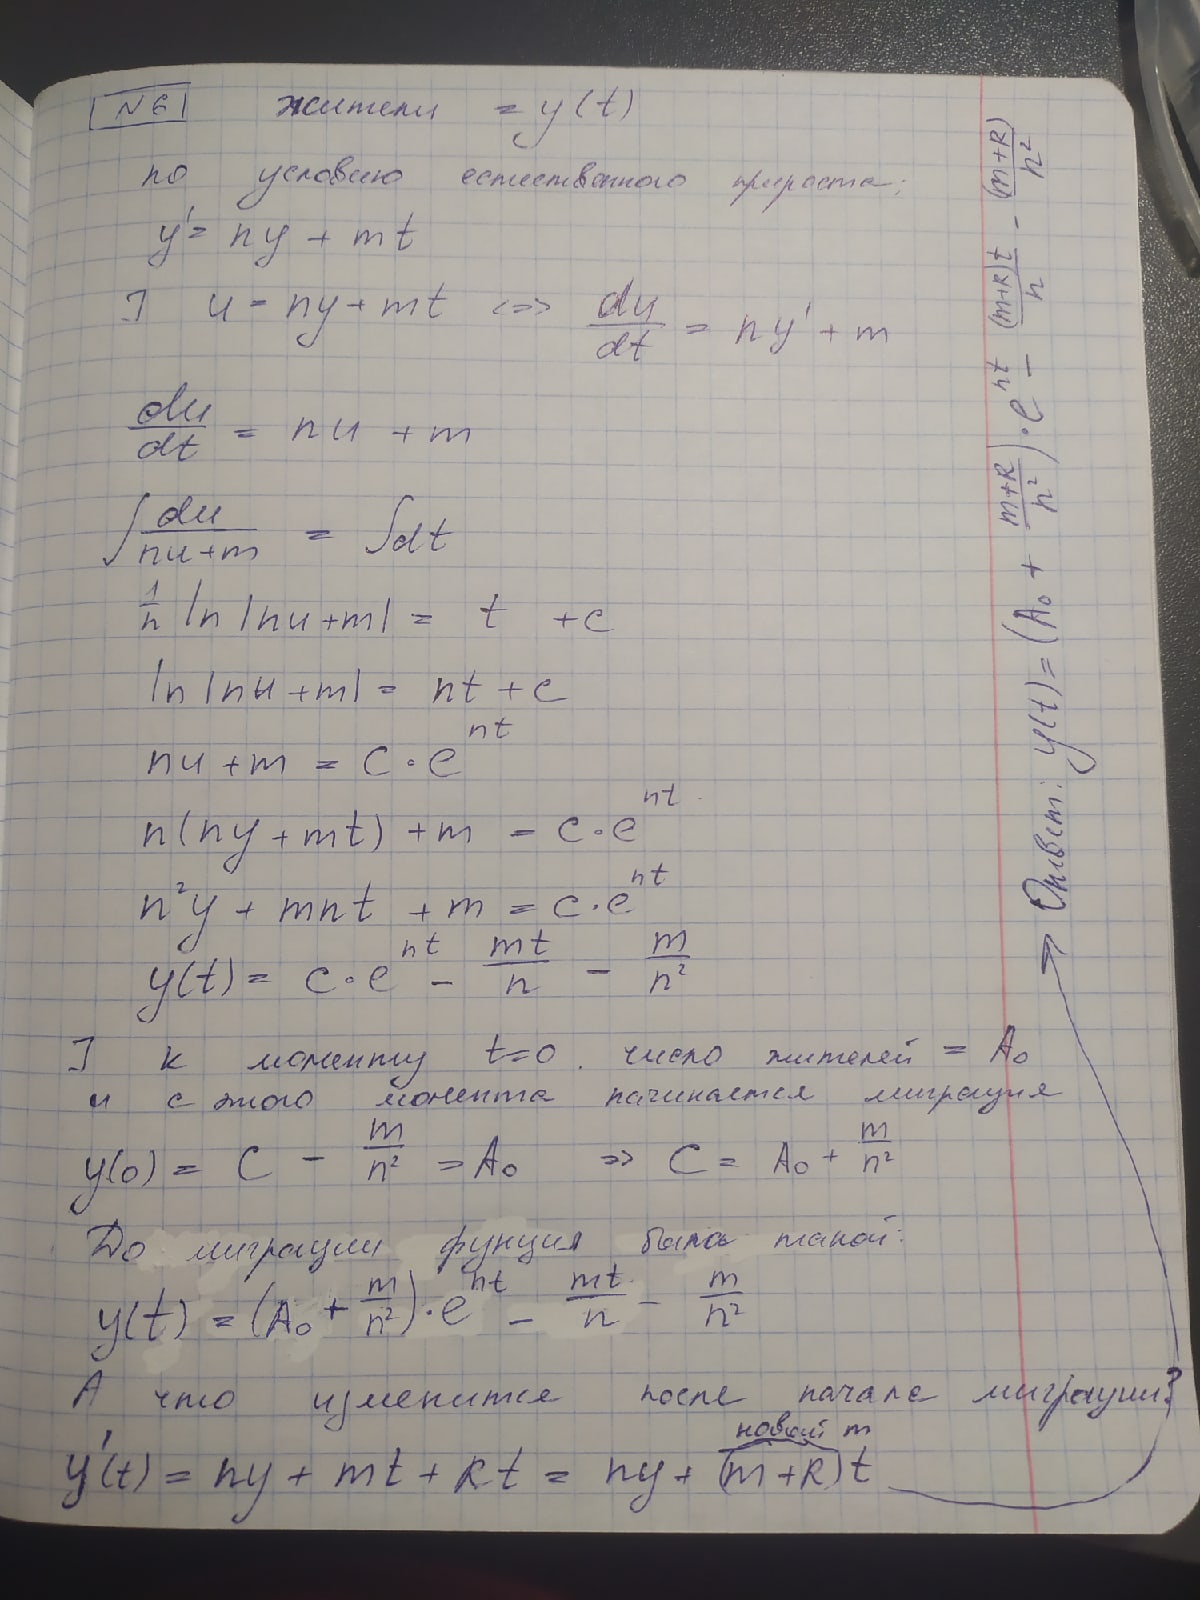 N6 жители = y(t)
по условию естественного прироста:
y' = ny + mt
] u = ny + mt <=> du/dt = ny' + m
du/dt = nu + m
∫ du/(nu+m) = ∫dt
1/n ln |nu+m| = t + c
ln |nu+m| = nt + c
nu + m = c · e^nt
n(ny + mt) + m = c · e^nt
n²y + mnt + m = c · e^nt
y(t) = c · e^nt - mt/n - m/n²
] к моменту t=0. число жителей = A₀
и с этого момента начинается миграция
y(0) = C - m/n² = A₀ => C = A₀ + m/n²
До миграции функция была такой:
y(t) = (A₀ + m/n²) · e^nt - mt/n - m/n²
А что изменится после начале миграции?
новый m
y'(t) = ny + mt + Rt = ny + (m+R)t
Ответ: y(t) = (A₀ + m+R/n²) · e^nt - (m+R)t/n - (m+R)/n²